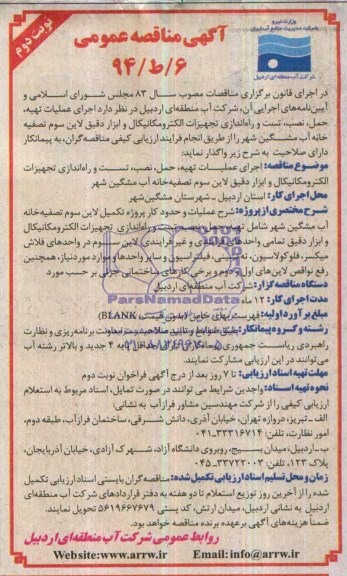 نوبت دوم
وزارت نیرو
شرکت مدیریت منابع آب ایران
شرکت آب منطقه‌ای اردبیل
آگهی مناقصه عمومی
۹۴/ط/۶
در اجرای قانون برگزاری مناقصات مصوب سال ۸۳ مجلس شورای اسلامی و
آیین‌نامه‌های اجرایی آن، شرکت آب منطقه‌ای اردبیل در نظر دارد اجرای عملیات تهیه،
حمل، نصب، تست و راه‌اندازی تجهیزات الکترومکانیکال و ابزار دقیق لاین سوم تصفیه
خانه آب مشگین شهر را از طریق انجام فرایند ارزیابی کیفی مناقصه‌گران، به پیمانکار
دارای صلاحیت به شرح زیر واگذار نماید:
موضوع مناقصه: اجرای عملیات تهیه، حمل، نصب، تست و راه‌اندازی تجهیزات
الکترومکانیکال و ابزار دقیق لاین سوم تصفیه‌خانه آب مشگین شهر
محل اجرای کار: استان اردبیل ـ شهرستان مشگین‌شهر
شرح مختصری از پروژه: شرح عملیات و حدود کار پروژه تکمیل لاین سوم تصفیه‌خانه
آب مشگین شهر شامل تهیه، حمل، نصب، تست و راه‌اندازی تجهیزات الکترومکانیکال
و ابزار دقیق تمامی واحدهای فرایندی و غیر فرایندی لاین سوم در واحدهای فلاش
میکسر، فلوکولاسیون، ته‌نشینی، فیلتراسیون و سایر واحدها و موارد موردنیاز، همچنین
رفع نواقص لاین‌های اول و دوم و برخی کارهای ساختمانی جزئی بر حسب مورد
ParsNamadData
دستگاه مناقصه گزار: شرکت آب منطقه‌ای اردبیل
مدت اجرای کار: ۱۲ ماه
مبلغ برآورد اولیه: فهرست بهای خاص (بدون قیمت، BLANK)
رشته و گروه پیمانکار: صلاحیت معاونت برنامه‌ریزی و نظارت
راهبردی ریاست جمهوری ۴ جدید و بالاتر رشته آب
می‌توانند در این ارزیابی مشارکت نمایند.
مهلت تهیه اسناد ارزیابی: تا ۷ روز بعد از درج آگهی فراخوان نوبت دوم
نحوه تهیه اسناد: واجدین شرایط می توانند در صورت تمایل، اسناد مربوط به استعلام
ارزیابی کیفی را از شرکت مهندسین مشاور فرازآب به نشانی:
الف ـ تبریز، دروازه تهران، خیابان آذری، دانش شرقی، ساختمان فرازآب، طبقه دوم،
امور نظارت، تلفن: ۳۳۳۱۶۷۱۴-۰۴۱
ب ـ اردبیل، میدان بسیج، روبروی دانشگاه آزاد، شهرک آزادی، خیابان آذربایجان،
پلاک ۱۲۳، تلفن: ۳۳۷۲۲۰۰۳-۰۴۵
زمان و محل تسلیم اسناد ارزیابی تکمیل شده: مناقصه گران بایستی اسناد ارزیابی تکمیل
شده را از آخرین روز توزیع استعلام تا دو هفته به دفتر قراردادهای شرکت آب منطقه‌ای
اردبیل به نشانی اردبیل، میدان ارتش، کد پستی ۵۶۱۹۶۶۷۶۷۹ تحویل نمایند.
ضمناً هزینه‌های آگهی برعهده برنده مناقصه خواهد بود.
روابط عمومی شرکت آب منطقه‌ای اردبیل
Website: www.arrw.ir Email: info@arrw.ir